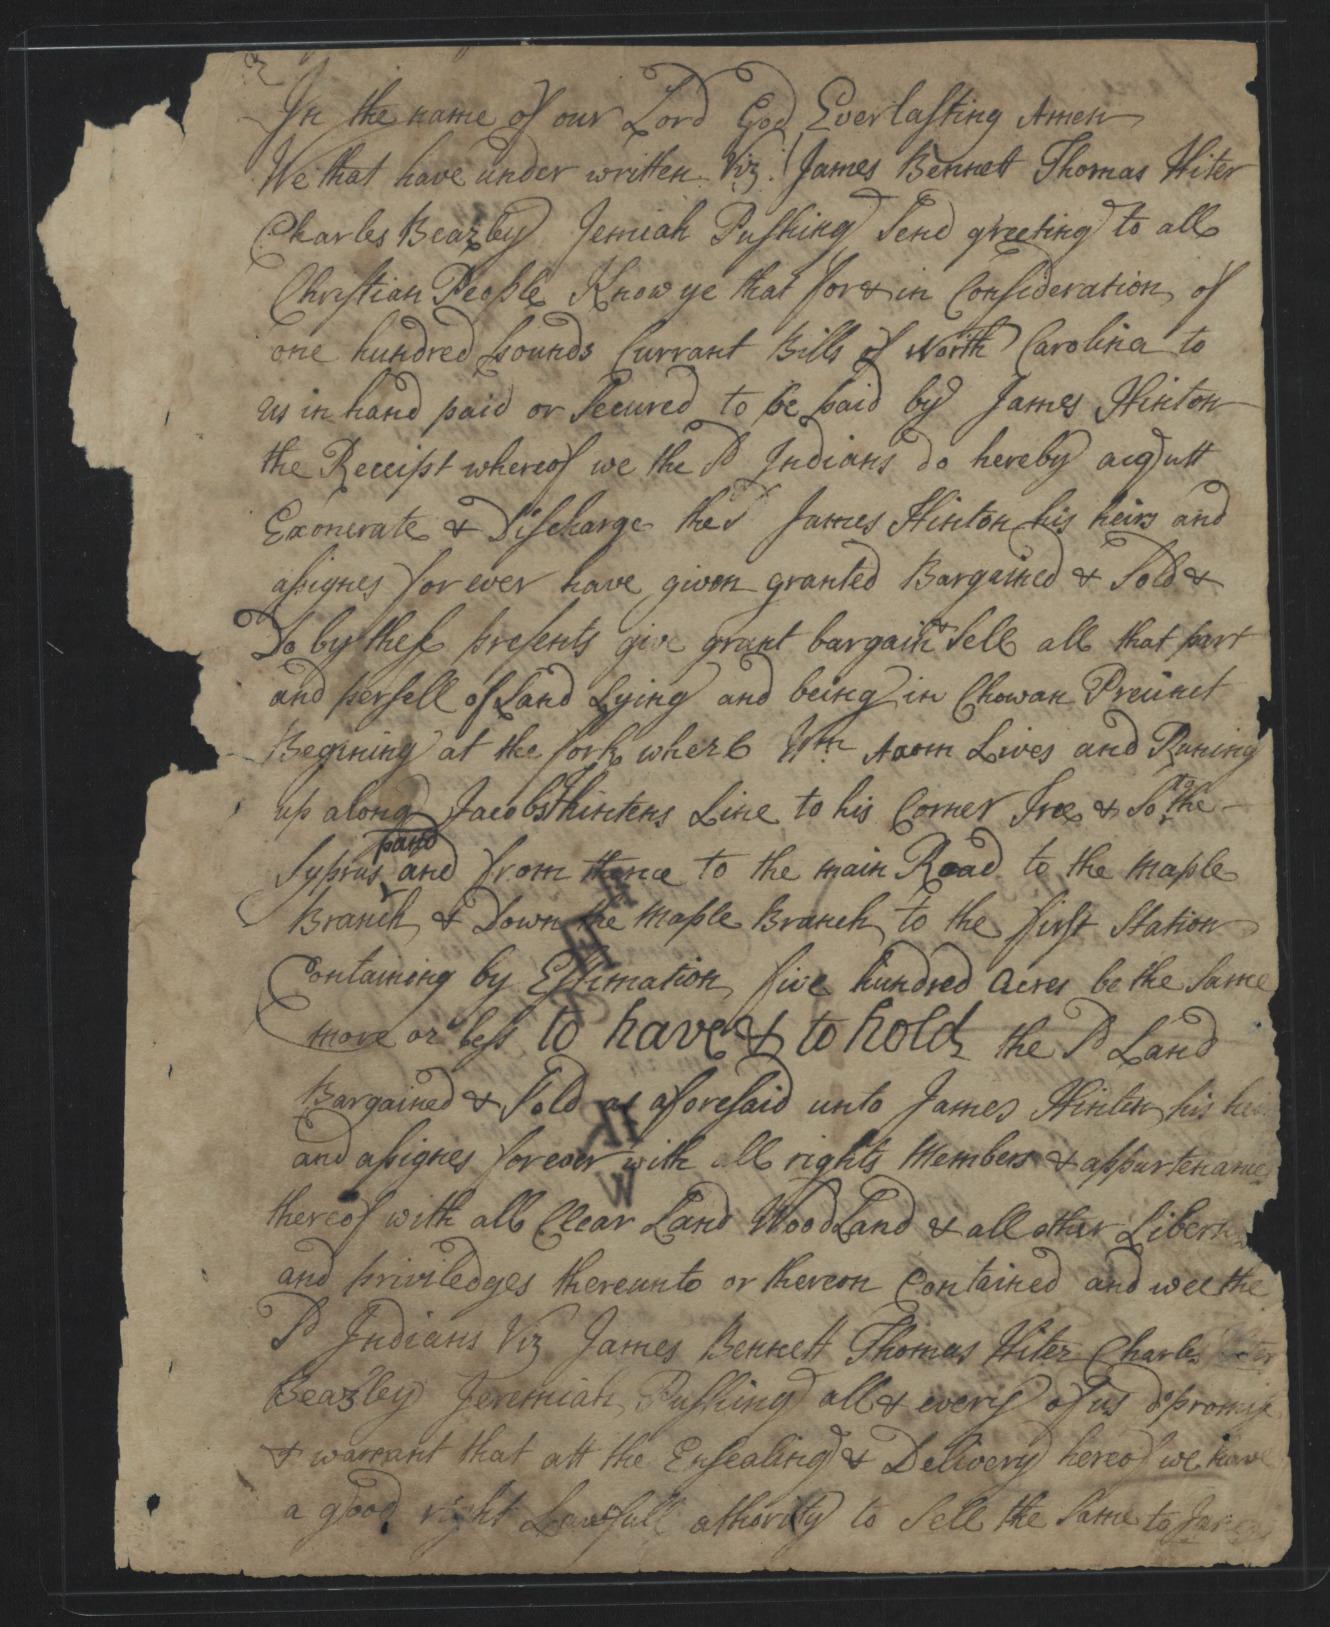 In the name of our Lord God Everlasting Amen
We that have under written Viz.t James Bennett Thomas Hiter
Charles Beazley Jemiah Pushing Send greeting to all
Christian People Know ye that for & in Consideration of
one hundred pounds Currant Bills of North Carolina to
us in hand paid or Secured to be paid by James Hinton
the Receipt whereof we the Sd Indians do hereby acqutt
Exonerate & Discharge the Sd James Hinton his heirs and
assignes for ever have given granted Bargained & Sold &
Do by these presents give grant bargain & Sell all that part
and persell of Land Lying and being in Chowan Precinct
Begining at the fork where Wm Lives and Runing
up along Jacobs Hintens Line to his Corner Tree & So to the
Syprus pand and from thence to the main Road to the Maple
Branch & Down the Maple Branch to the first Station
Containing by Estimation five hundred acres be the Same
more or less to have & to hold the Sd Land
Bargained & Sold as aforesaid unto James Hinton his
and assignes forever with all rights Members & appurtenames
thereof with all Clear Land WoodLand & all other
and priviledges thereunto or thereon Contained and wee the
Sd Indians Viz James Bennett Thomas Hiter Charles
Beazley Jeremiah Pushing all & every of us do promise
& warrant that att the Ensealing & Delivery hereof we have
a good right Lawfull athority to Sell the Same to James